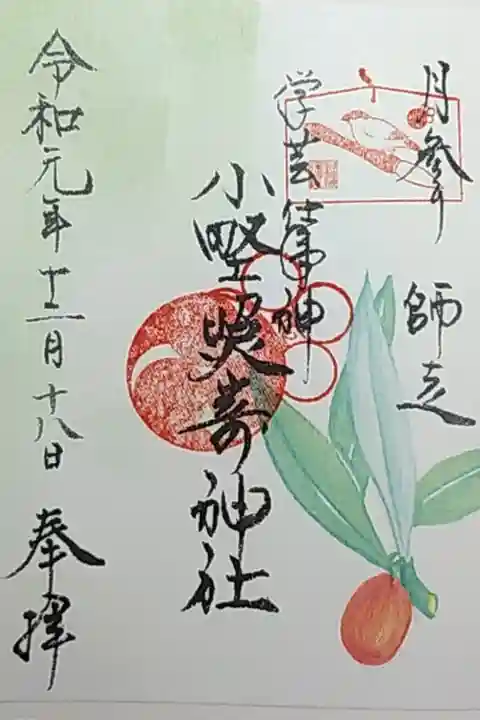 月参り 師走
学芸 神
小野照嵜神社
令和元年十二月十八日 奉拝